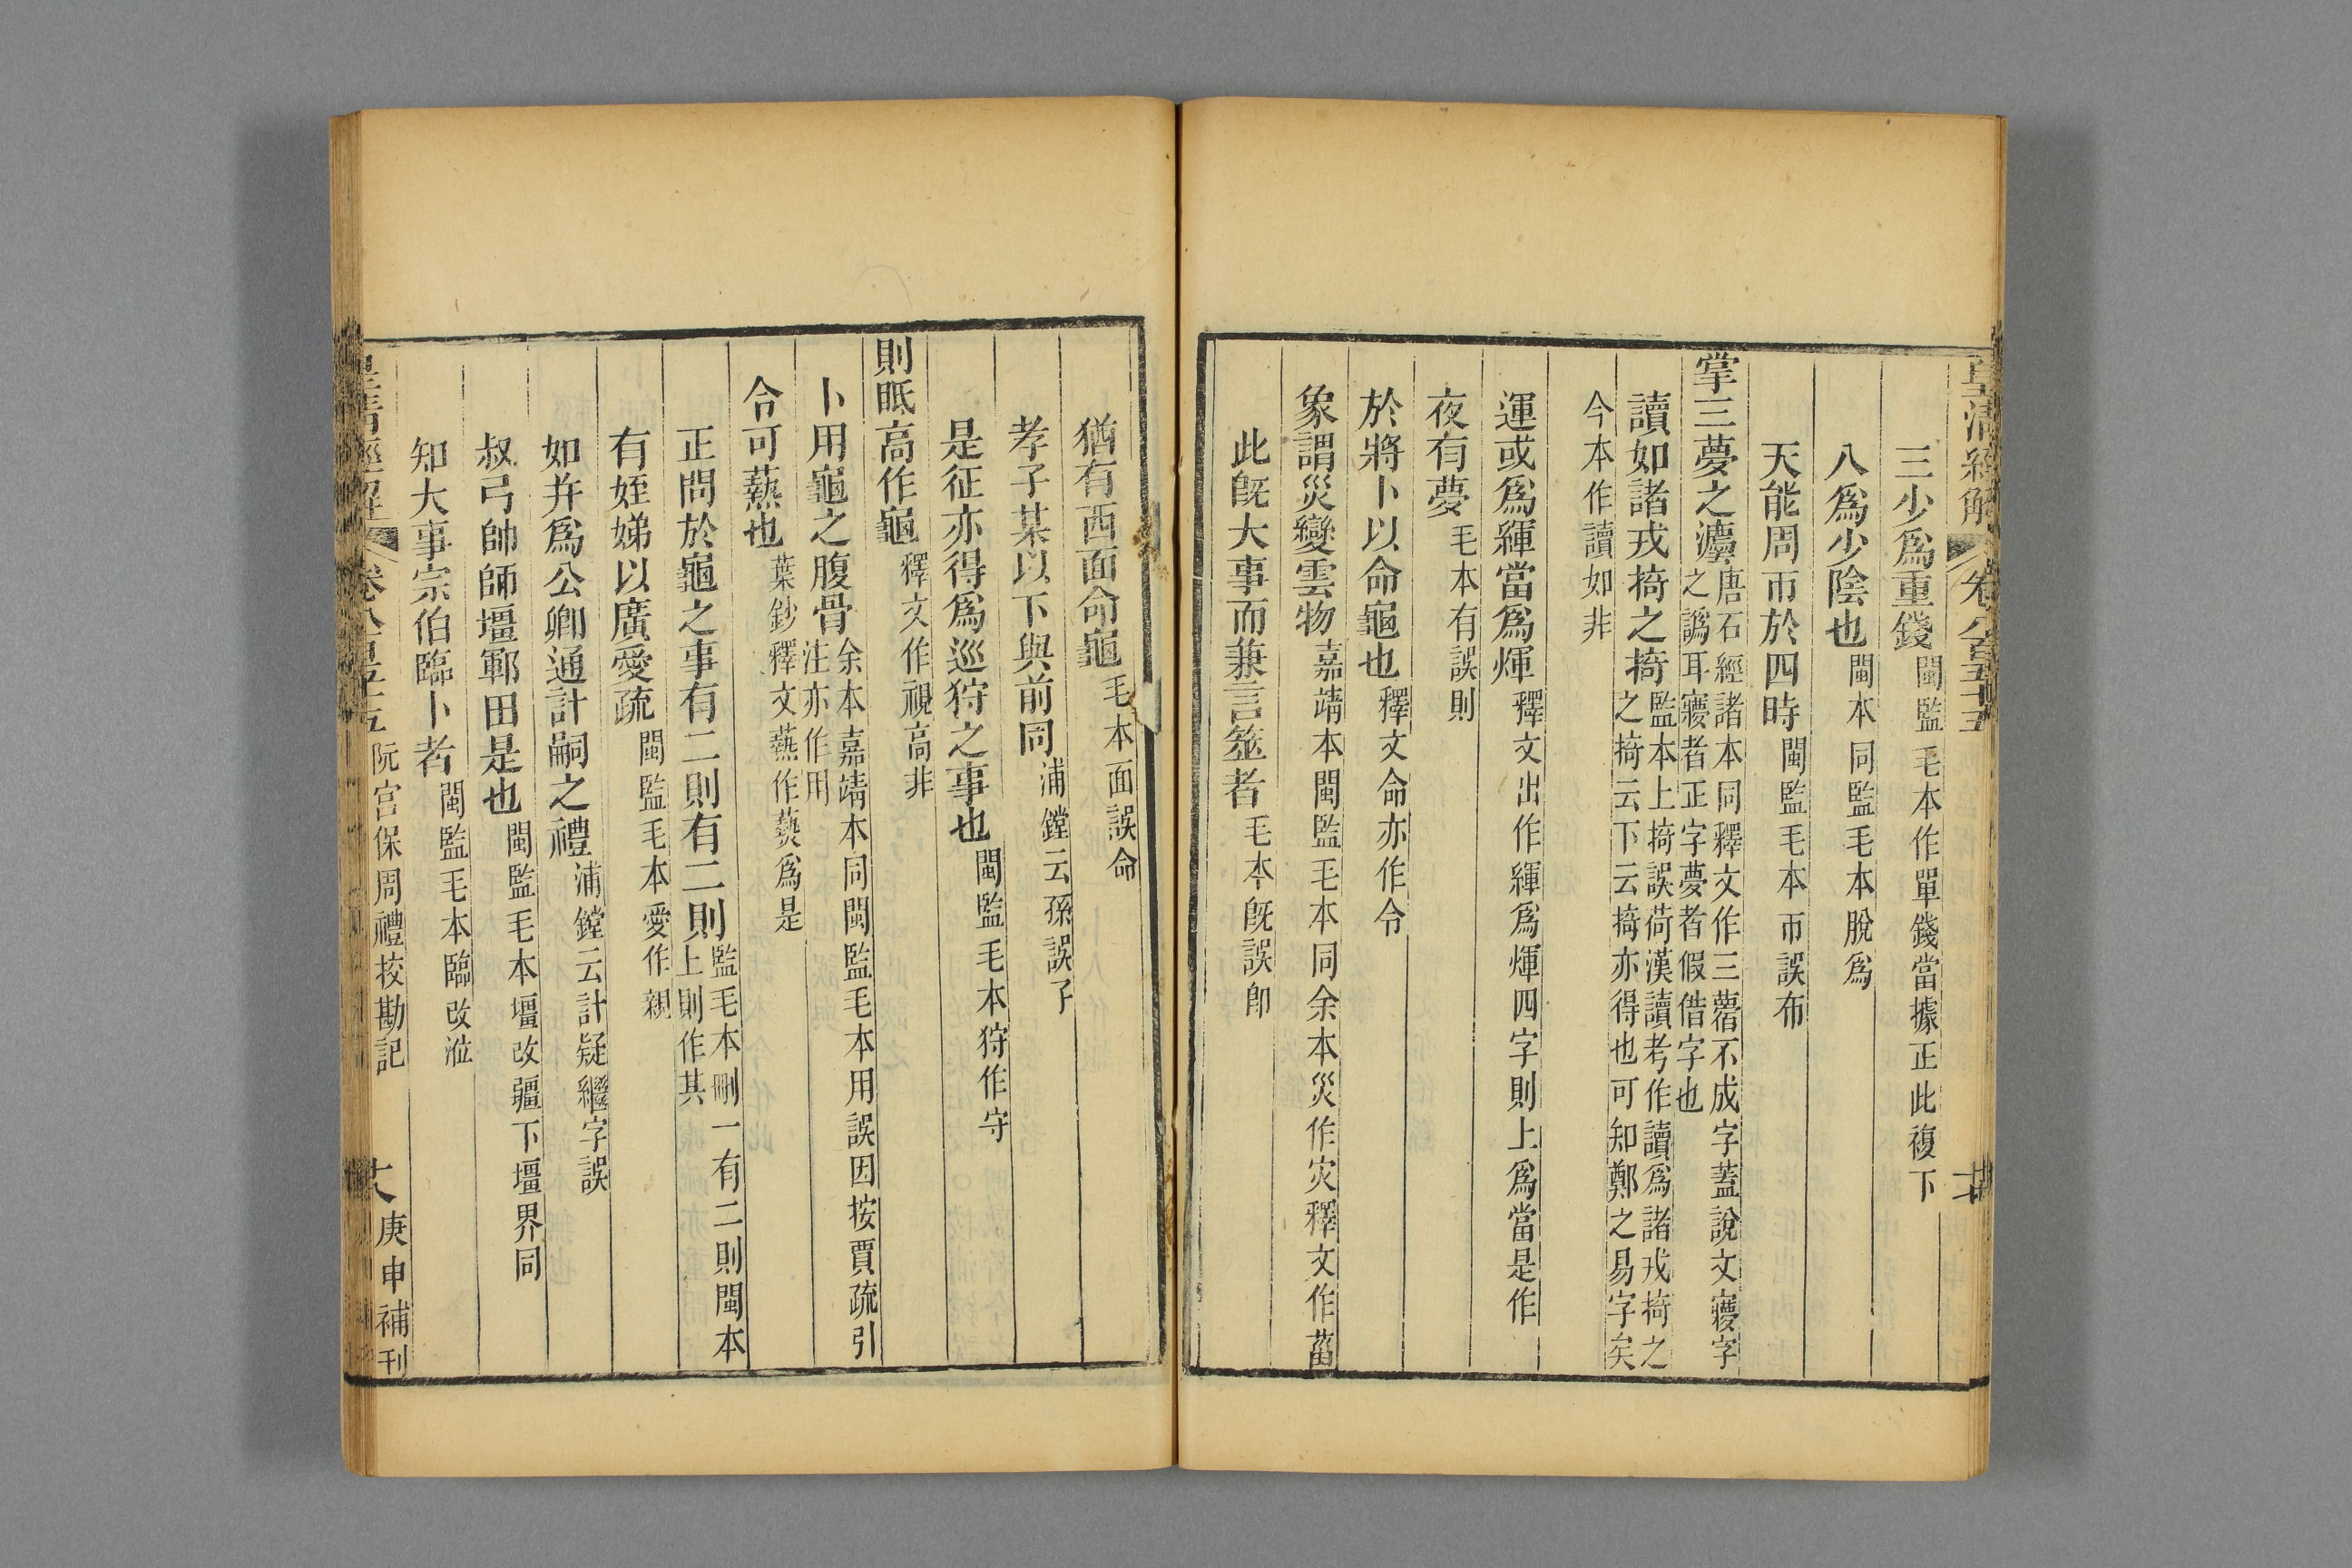 皇清經解 卷八百五十五
三少爲重錢閩監毛本作單錢當據正此複下
八爲少陰也閩本同監毛本脫爲
天能周帀於四時閩監毛本帀誤布
掌三夢之灋唐石經諸本同釋文作三㝱不成字蓋說文㝱字
之譌耳㝱者正字夢者假借字也
讀如諸戎掎之掎監本上掎誤荷漢讀考作讀爲諸戎掎之
之掎云下云掎亦得也可知鄭之易字矣
今本作讀如非
運或爲緷當爲煇釋文出作緷爲煇四字則上爲當是作
夜有夢毛本有誤則
於將卜以命龜也釋文命亦作令
象謂災變雲物嘉靖本閩監毛本同余本災作灾釋文作菑
此旣大事而兼言筮者毛本旣誤卽
猶有西面命龜毛本面誤命
孝子某以下與前同浦鏜云孫誤子
是征亦得爲巡狩之事也閩監毛本狩作守
則眡高作龜釋文作視高非
卜用龜之腹骨余本嘉靖本同閩監毛本用誤因按賈疏引
注亦作用
令可爇也葉鈔釋文爇作蓺爲是
正問於龜之事有二則有二則監毛本刪一有二則閩本
上則作其
有姪娣以廣愛疏閩監毛本愛作親
如并爲公卿通計嗣之禮浦鏜云計疑繼字誤
叔弓帥師壃鄆田是也閩監毛本壃改疆下壃界同
知大事宗伯臨卜者閩監毛本臨改涖
皇清經解 卷八百五十五 阮宮保周禮挍勘記 庚申補刊